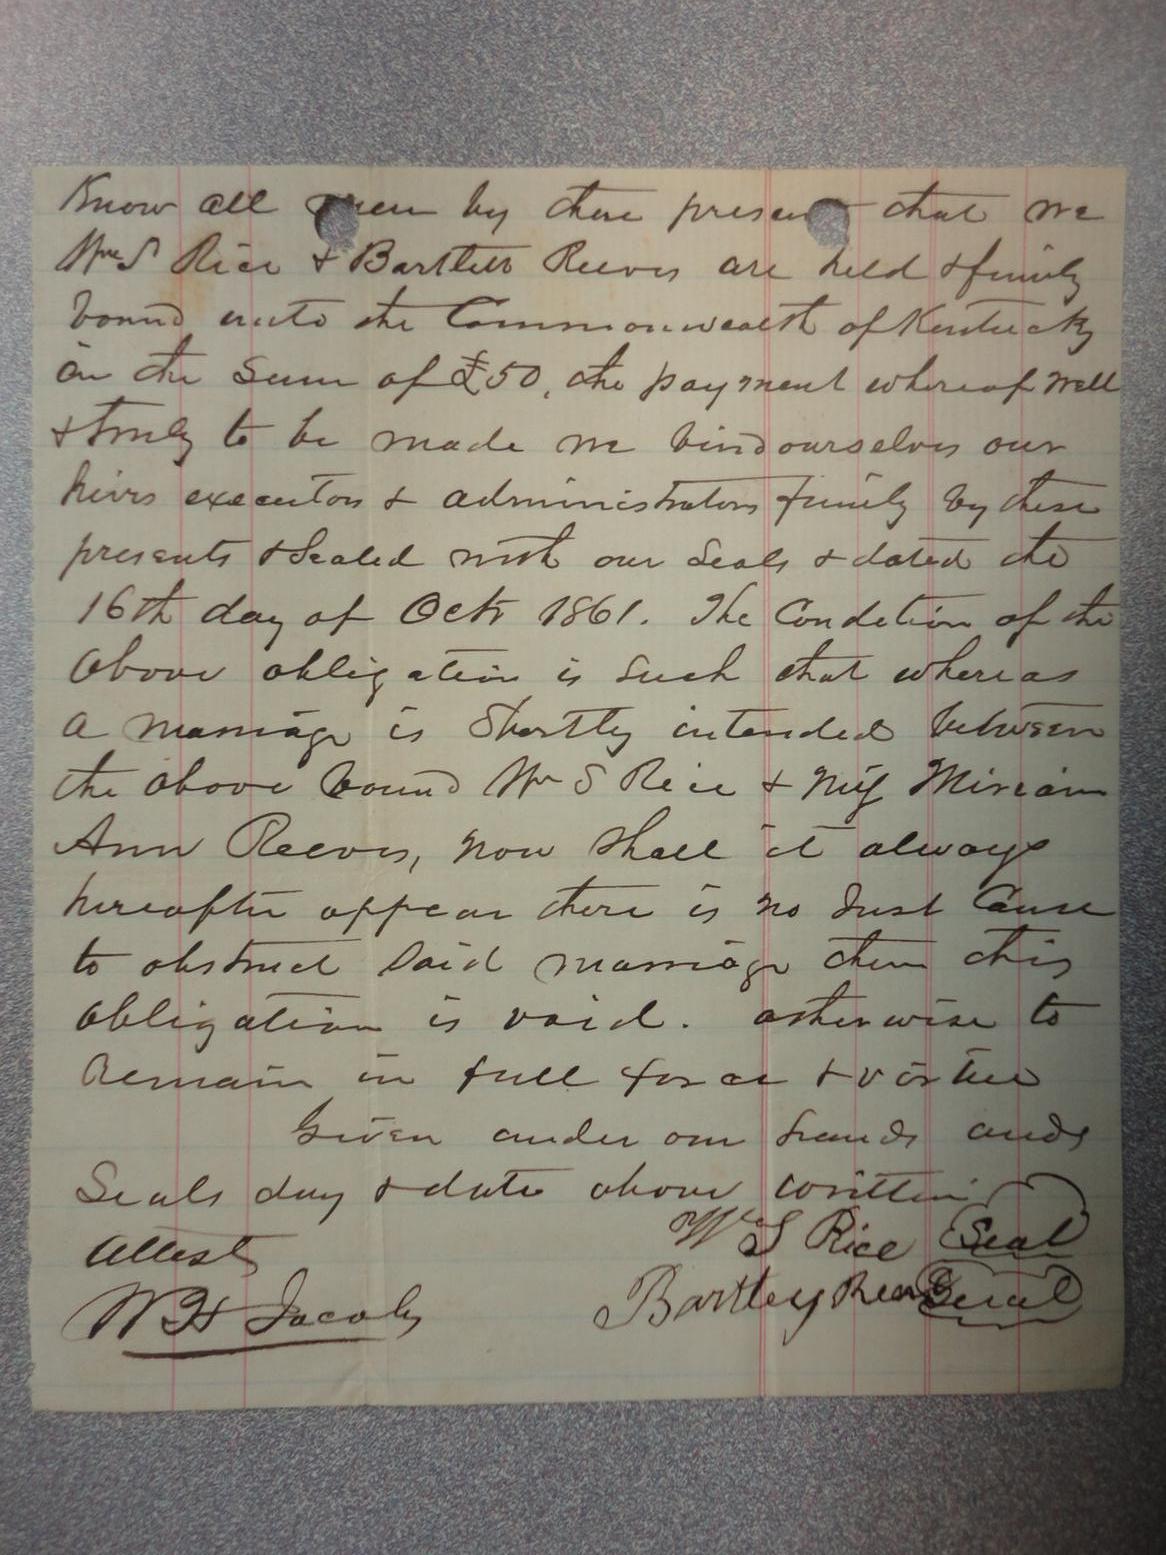 Know all men by these present that we
Wm S Rice & Bartlett Reeves are held & firmly
bound unto the Commonwealth of Kentucky
in the Sum of £50, the payment whereof well
& truly to be made we bind ourselves our
heirs executors & administrators firmly by these
presents & Sealed with our Seals & dated the
16th day of Octr 1861. The Condition of the
above obligation is Such that whereas
a marriage is Shortly intended between
the above bound Wm S Rice & Miss Miriam
Ann Reeves, now shall it always
hereafter appear there is no Just Cause
to obstruct Said marriage then this
obligation is void. otherwise to
Remain in full force & virtue
Given under our hands and
Seals day & date above written
Wm S Rice Seal
Attest
Bartley Reeves Seal
WH Jacoby